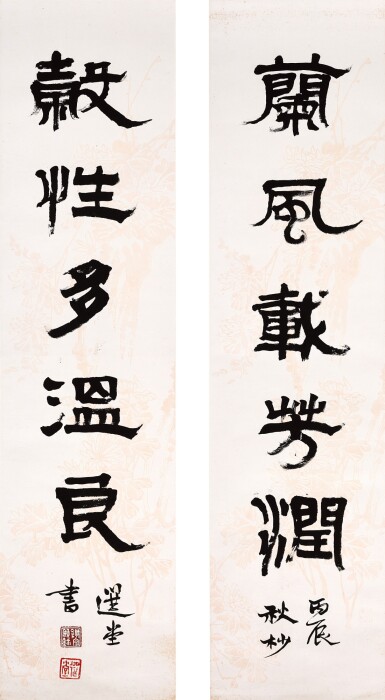 蘭風載芳潤
丙辰
秋杪
穀性多溫良
選堂
書